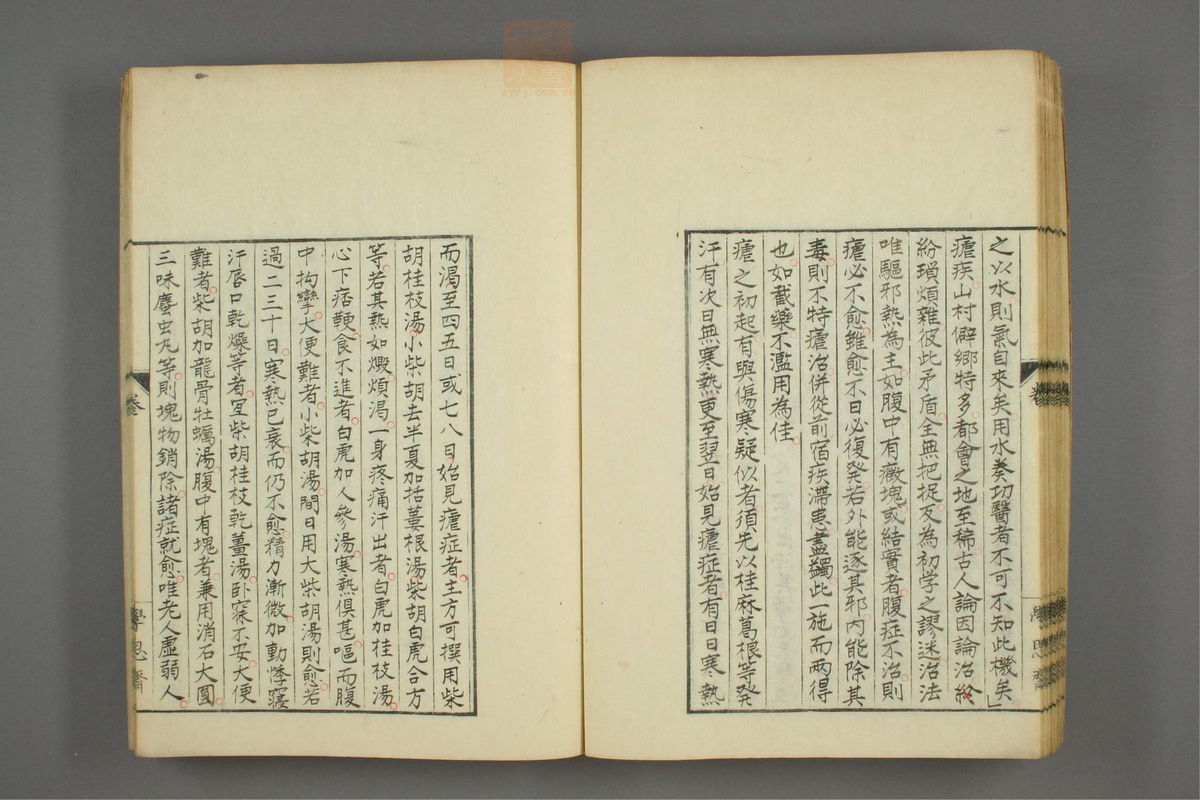 之以水則氣自來矣用水奏功醫者不可不知此機矣」
瘧疾山村僻鄉特多都會之地至稀古人論因論治紛
紛瑣煩雜彼此矛盾全無把捉反為初学之謬迷治法
唯驅邪熱為主如腹中有癥塊或結實者腹症不治則
瘧必不愈雖愈不日必復発若外能逐其邪内能除其
毒則不特瘧治併從前宿疾滯患盡蠲此一施而兩得
也如截藥不濫用為佳
瘧之初起有與傷寒疑似者須先以桂麻葛根等発
汗有次日無寒熱更至翌日始見瘧症者有日日寒熱
而渴至四五日或七八日始見瘧症者主方可撰用柴
胡桂枝湯小柴胡去半夏加括蔞根湯柴胡白虎合方
等若其熱如燬煩渴一身疼痛汗出者白虎加桂枝湯
心下痞鞕食不進者白虎加人參湯寒熱俱甚嘔而腹
中拘攣大便難者小柴胡湯間日用大柴胡湯則愈若
過二三十日寒熱已衰而仍不愈精力漸微加動悸寢
汗唇口乾燥等者宜柴胡桂枝乾薑湯臥寐不安大便
難者柴胡加龍骨牡蠣湯腹中有塊者兼用消石大圓
三味䗪虫丸等則塊物銷除諸症就愈唯老人虛弱人
卷
學思齋